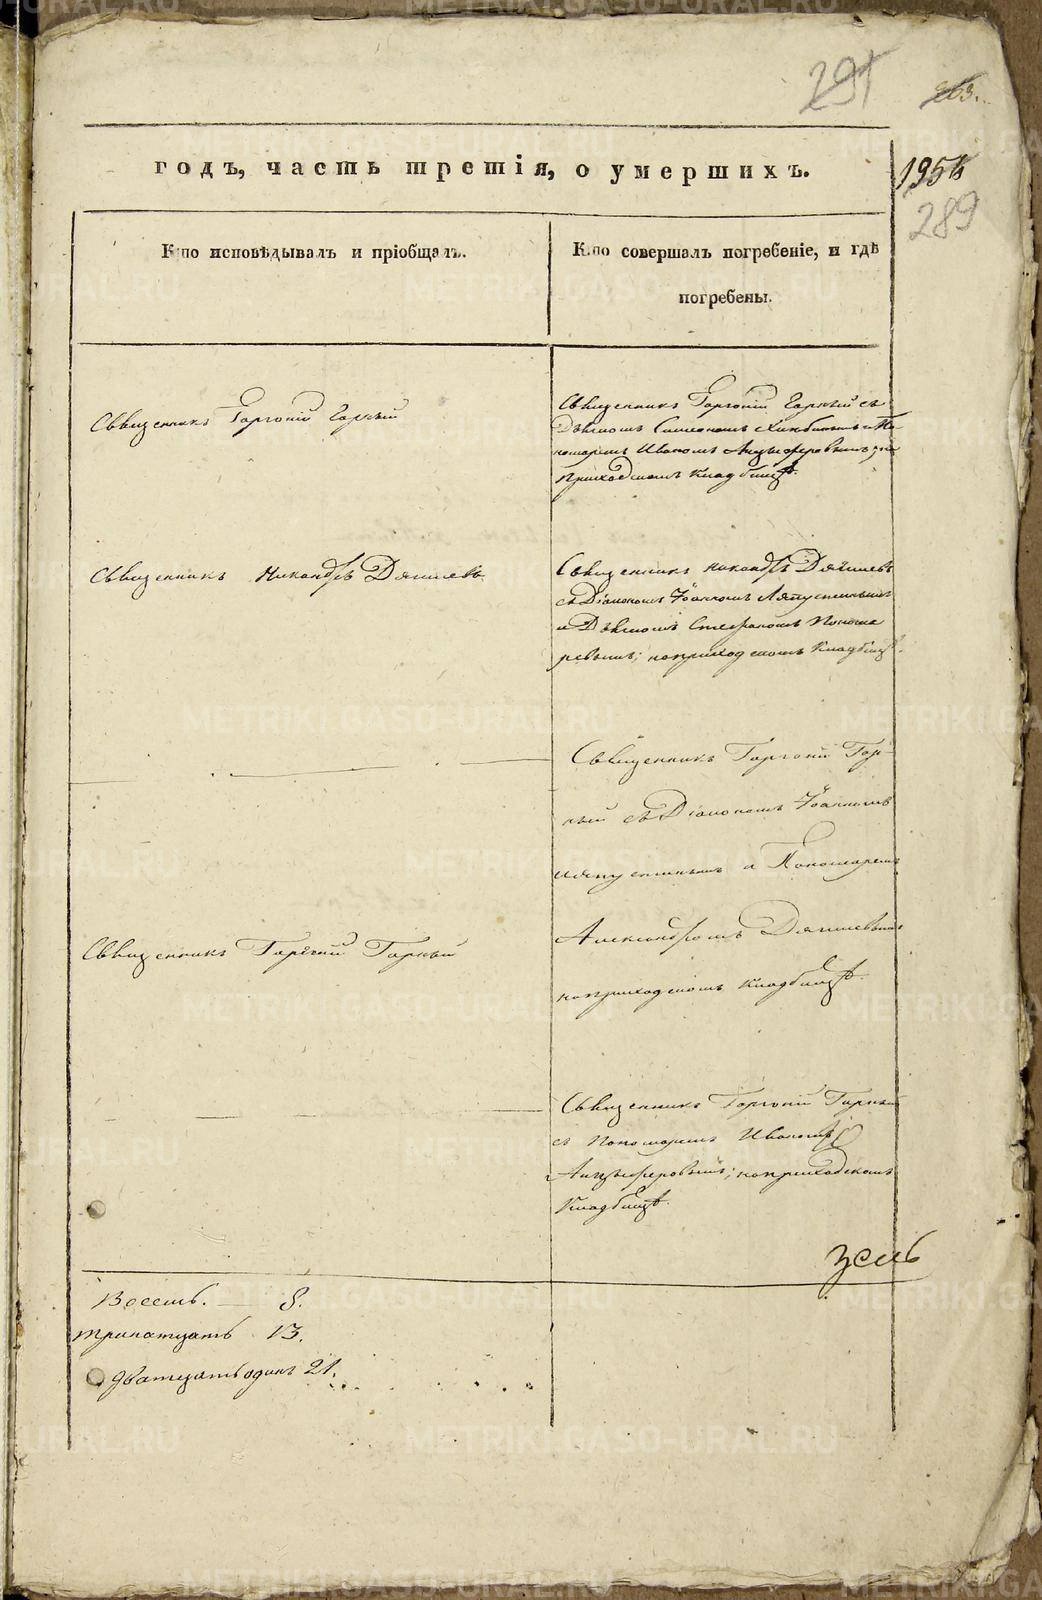 291
263.
годъ, часть третія, о умершихъ.
195
289
Кто исповѣдывалъ и пріобщалъ.
Кто совершалъ погребеніе, и гдѣ
погребены.
Священникъ Горгоній Горный
Священникъ Горгоній Горный съ
Дьячкомъ Симеономъ и По-
номаремъ Иваномъ Анцыферовымъ; на
Приходскомъ Кладбищѣ.
Священникъ Никандръ Дягилевъ
Священникъ Никандръ Дягилевъ
съ Діакономъ Іоанномъ Ляпустинымъ
и Дьячкомъ Стефаномъ Понома
ревымъ; на приходскомъ Кладбищѣ.
Священникъ Горгоній Гор-
ный съ Діакономъ Іоанномъ
Ляпустинымъ и Пономаремъ
Александромъ Дягилевымъ
на приходскомъ Кладбищѣ.
Священникъ Горгоній Горный
Священникъ Горгоній Горный
съ Пономаремъ Иваномъ
Анцыферовымъ; на приходскомъ
Кладбищѣ.
Восемь. — 8.
тринатцать 13.
дватцать одинъ 21.